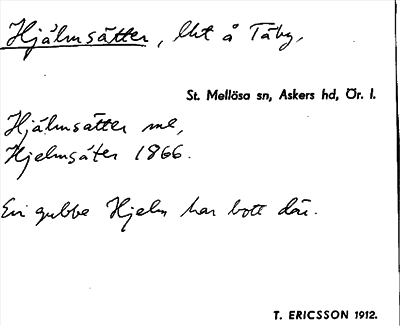 Hjälmsätter, lht å Täby,
St. Mellösa sn, Askers hd, Ör. l.
Hjälmsätter me,
Hjelmsäter 1866.
En gubbe Hjelm har bott där.
T. ERICSSON 1912.